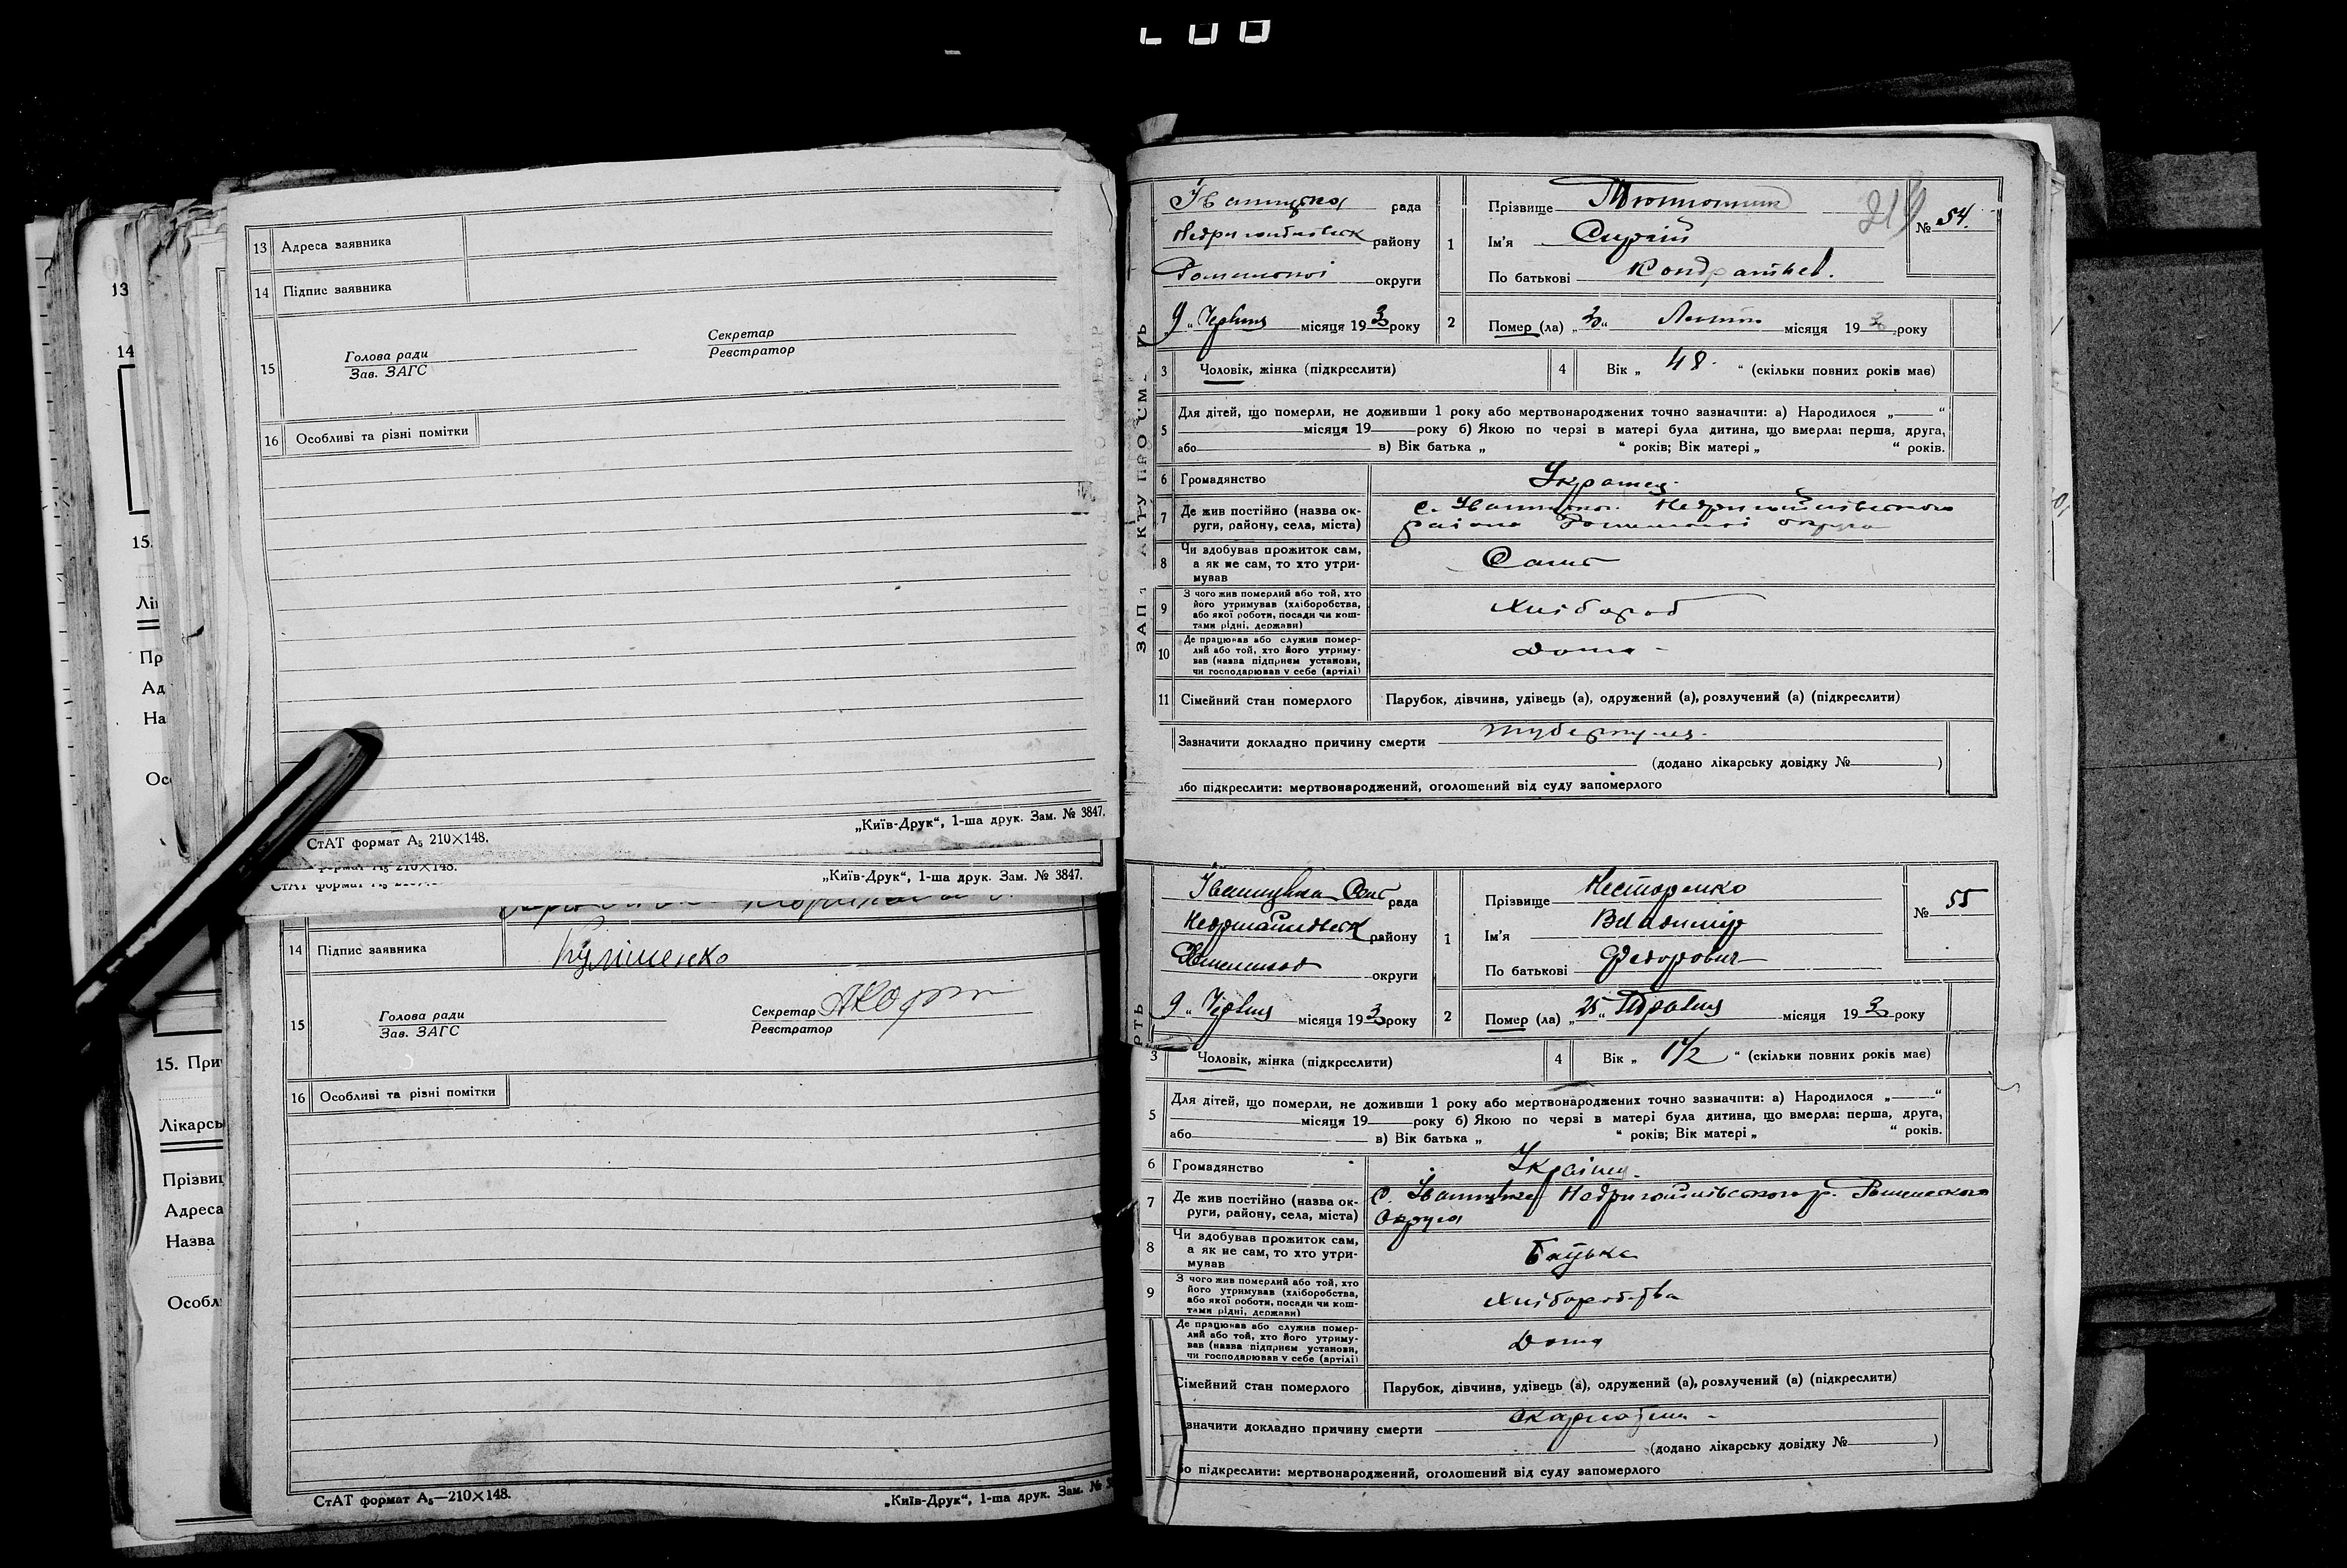 13 Адреса заявника
14 Підпис заявника
15 Голова ради
Зав. ЗАГС
Секретар
Реєстратор
16 Особливі та різні помітки
СтАТ формат А₅ 210×148.
„Київ-Друк“, 1-ша друк. Зам. № 3847.
„Київ-Друк“, 1-ша друк. Зам. № 3847.
14 Підпис заявника
Куліиенко
15 Голова ради
Зав. ЗАГС
Секретар
Реєстратор
16 Особливі та різні помітки
СтАТ формат А₅—210×148.
„Київ-Друк“, 1-ша друк. Зам. №
13
14
15.
Лі
Пр
Ад
На
Ос
15. При
Лікарсь
Прізви
Адреса
Назва
Особл
рада
району
Роменської округи
9 „ Червня місяця 193 року
1 Прізвище
Ім’я Сергій
По батькові Кондратьев.
№ 54.
2 Помер (ла) „ “ місяця 193 року
3 Чоловік, жінка (підкреслити)
4 Вік „ 48 “ (скільки повних років має)
5 Для дітей, що померли, не доживши 1 року або мертвонароджених точно зазначити: а) Народилося „ “
місяця 19 року б) Якою по черзі в матері була дитина, що вмерла: перша, друга,
або в) Вік батька „ “ років; Вік матері „ “ років.
6 Громадянство Украінец
7 Де жив постійно (назва округи, району, села, міста)
с. Іваницької Недригайлівського
району Роменської округи
8 Чи здобував прожиток сам,
а як не сам, то хто утри-
мував
Сам
9 З чого жив померлий або той, хто
його утримував (хліборобства,
або якої роботи, посади чи кош-
тами рідні, держави)
Хлібороб
10 Де працював або служив помер-
лий або той, хто його утриму-
вав (назва підприєм установи,
чи господарював у себе (артілі)
Дома
11 Сімейний стан померлого
Парубок, дівчина, удівець (а), одружений (а), розлучений (а) (підкреслити)
Зазначити докладно причину смерти туберкульоз
(додано лікарську довідку № )
або підкреслити: мертвонароджений, оголошений від суду запомерлого
рада
району
округи
9 „ Червня місяця 193 року
1 Прізвище Нестеренко
Ім’я Владимір
По батькові Федорович
№ 55
2 Помер (ла) „ 25 “ Травня місяця 193 року
3 Чоловік, жінка (підкреслити)
4 Вік „ 1½ “ (скільки повних років має)
5 Для дітей, що померли, не доживши 1 року або мертвонароджених точно зазначити: а) Народилося „ “
місяця 19 року б) Якою по черзі в матері була дитина, що вмерла: перша, друга,
або в) Вік батька „ “ років; Вік матері „ “ років.
6 Громадянство Українец
7 Де жив постійно (назва ок-
руги, району, села, міста)
с. Іваницька Недригайлівського р. Роменського
Округа
8 Чи здобував прожиток сам,
а як не сам, то хто утри-
мував
Батька
9 З чого жив померлий або той, хто
його утримував (хліборобства,
або якої роботи, посади чи кош-
тами рідні, держави)
Хліборобства
Де працював або служив помер-
лий або той, хто його утриму-
вав (назва підприєм установи,
чи господарював у себе (артілі)
Дома
Сімейний стан померлого
Парубок, дівчина, удівець (а), одружений (а), розлучений (а) (підкреслити)
значити докладно причину смерти скарлатина
(додано лікарську довідку № )
бо підкреслити: мертвонароджений, оголошений від суду запомерлого